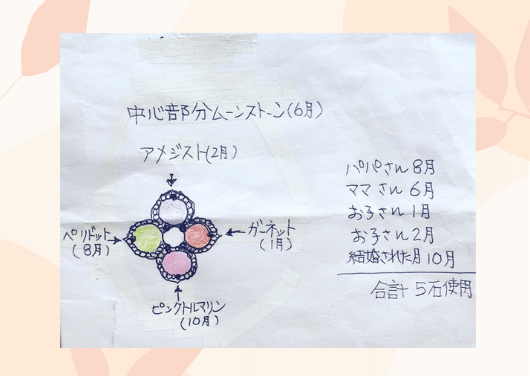 中心部分ムーンストーン(6月)
アメジスト(2月)
ペリドット
(8月)
ガーネット
(1月)
ピンクトルマリン
(10月)
パパさん 8月
ママさん 6月
お子さん 1月
お子さん 2月
結婚された月 10月
合計 5石使用